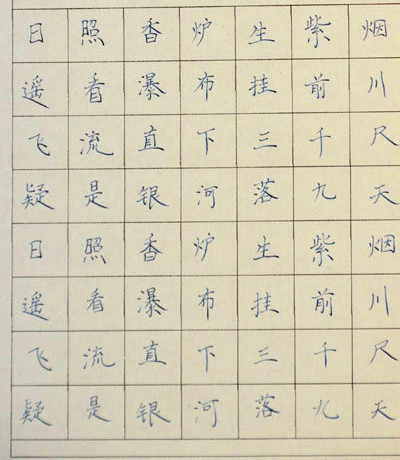 日照香炉生紫烟
遥看瀑布挂前川
飞流直下三千尺
疑是银河落九天
日照香炉生紫烟
遥看瀑布挂前川
飞流直下三千尺
疑是银河落九天